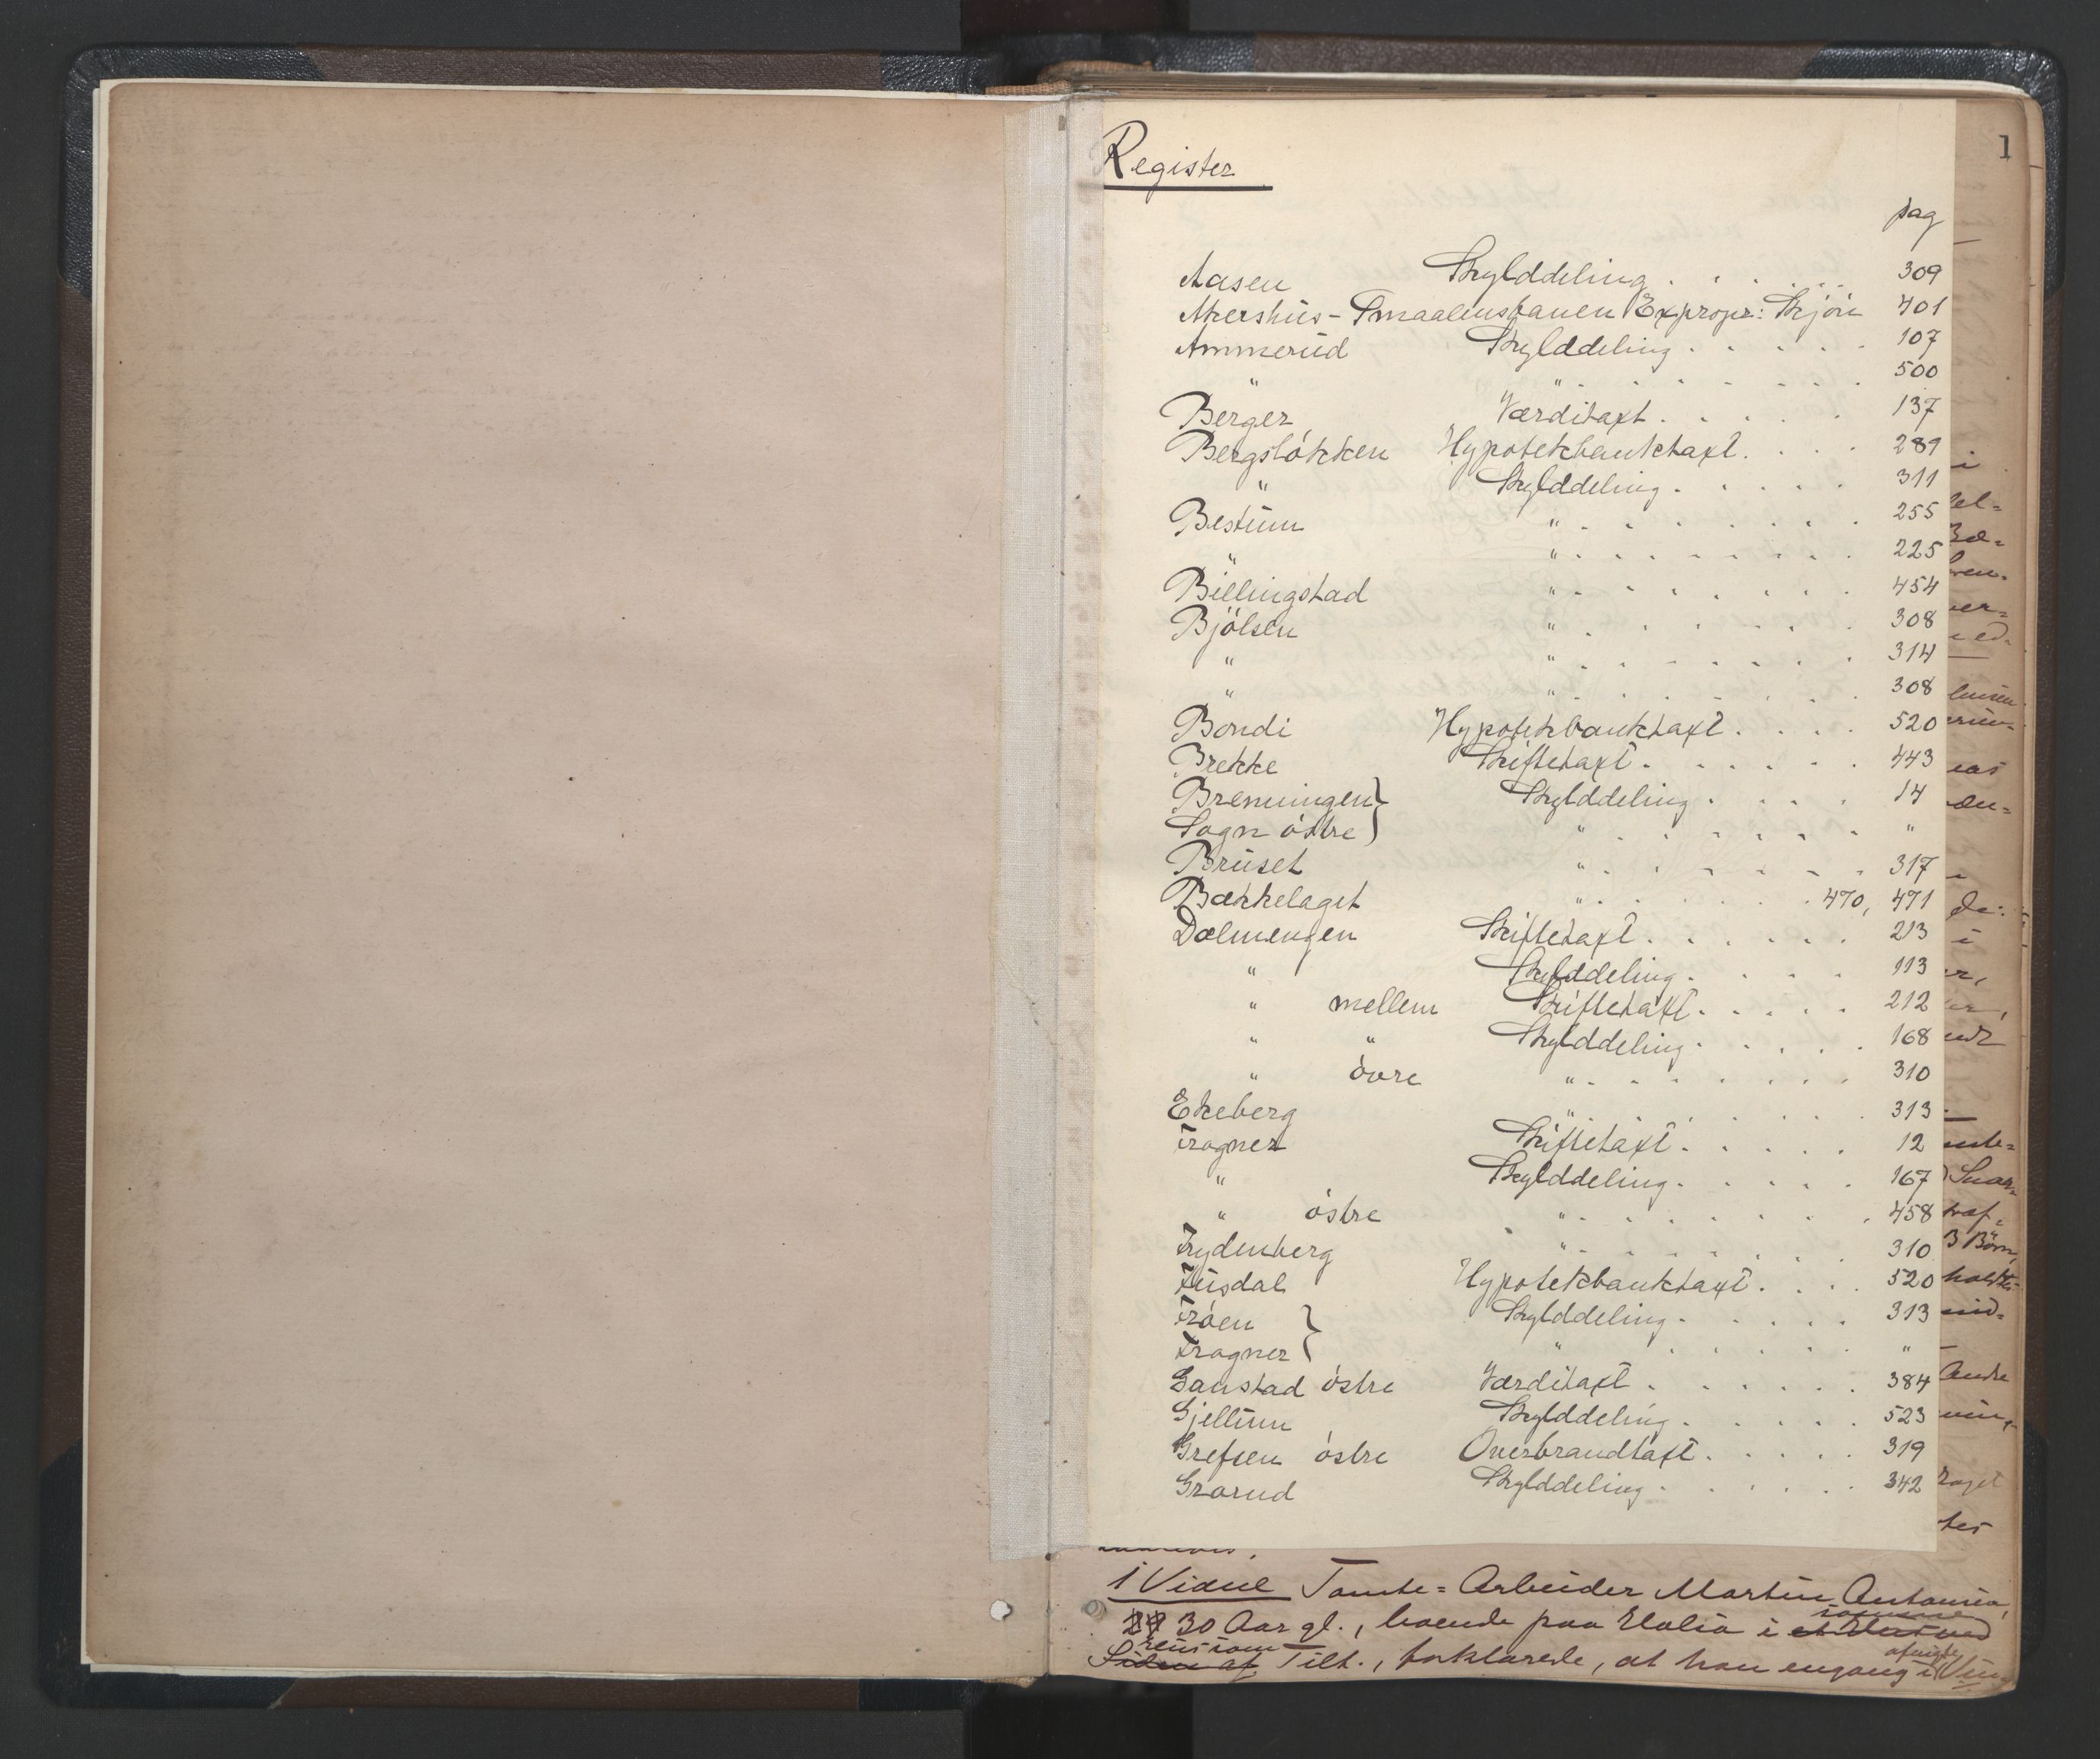 1
Register
pag
Aasen Skylddeling . . . . . 309
Akershus-Smaalensbanen Expropr: Skjön 401
Ammerud Skylddeling . . . . . 107
" " . . . . . . . . 500
Berger Værditaxt . . . . . 137
Bergslökken Hypotekbanktaxt . . . . 289
" Skylddeling . . . . . 311
Bestum " . . . . . . . 255
" " . . . . . . . . 225
Billingstad " . . . . . . . 454
Bjölsen " . . . . . . . 308
" " . . . . . . . 314
" " . . . . . . . 308
Bondi Hypotekbanktaxt . . . . 520
Brekke Skiftetaxt . . . . . . 443
Brenningen } Skylddeling . . . . 14
Sogn östre } " . . . . . . . "
Bruset " . . . . . . . 317
Bækkelaget " . . . . . . 470, 471
Dælmengen Skiftetaxt . . . . . . 213
" Skylddeling . . . . 113
" mellem Skiftetaxt . . . . . 212
" " Skylddeling . . . . . 168
" övre " . . . . . . . 310
Ekeberg " . . . . . . . 313
Frogner Skiftetaxt . . . . . 12
" Skylddeling . . . . . 167
" östre " . . . . . . . . 458
Frydenberg " . . . . . . . 310
Fusdal Hypotekbanktaxt . . . 520
Fröen } Skylddeling . . . . . 313
Frogner } " . . . . . "
Gaustad östre Værditaxt . . . . . . 384
Gjellum Skylddeling . . . . . 523
Grefsen östre Overbrandtaxt . . . . . 319
Grorud Skylddeling . . . . . . 342
1 Vidne Tomte-Arbeider Martin Antonius,
30 Aar gl., boende paa Elalia i
Tilt., forklarede, at han engang i